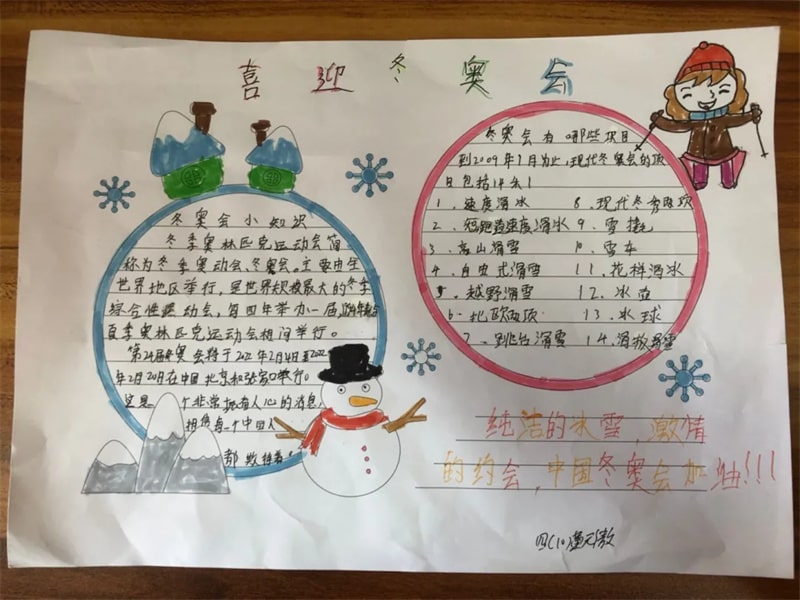 喜迎冬奥会
冬奥会小知识
冬季奥林匹克运动会简
称为冬季奥动会、冬奥会。主要由全
世界地区举行,是世界规模最大的冬季
综合性运动会,每四年举办一届
夏季奥林匹克运动会相间举行。
第24届冬奥会将于2022年2月4日至2022
年2月20日在中国北京和张家口举行。
这是一个非常振奋人心的消息,
相信每一个中国人
都
冬奥会有哪些项目
到2009年1月为止,现代冬奥会的项
目包括14个
1、速度滑冰
2、短跑道速度滑冰
3、高山滑雪
4、自由式滑雪
5、越野滑雪
6、北欧两项
7、跳台滑雪
8、现代冬季两项
9、雪橇
10、雪车
11、花样滑冰
12、冰壶
13、冰球
14、滑板滑雪
纯洁的冰雪,激情
的约会,中国冬奥会加油!!!
四(10)